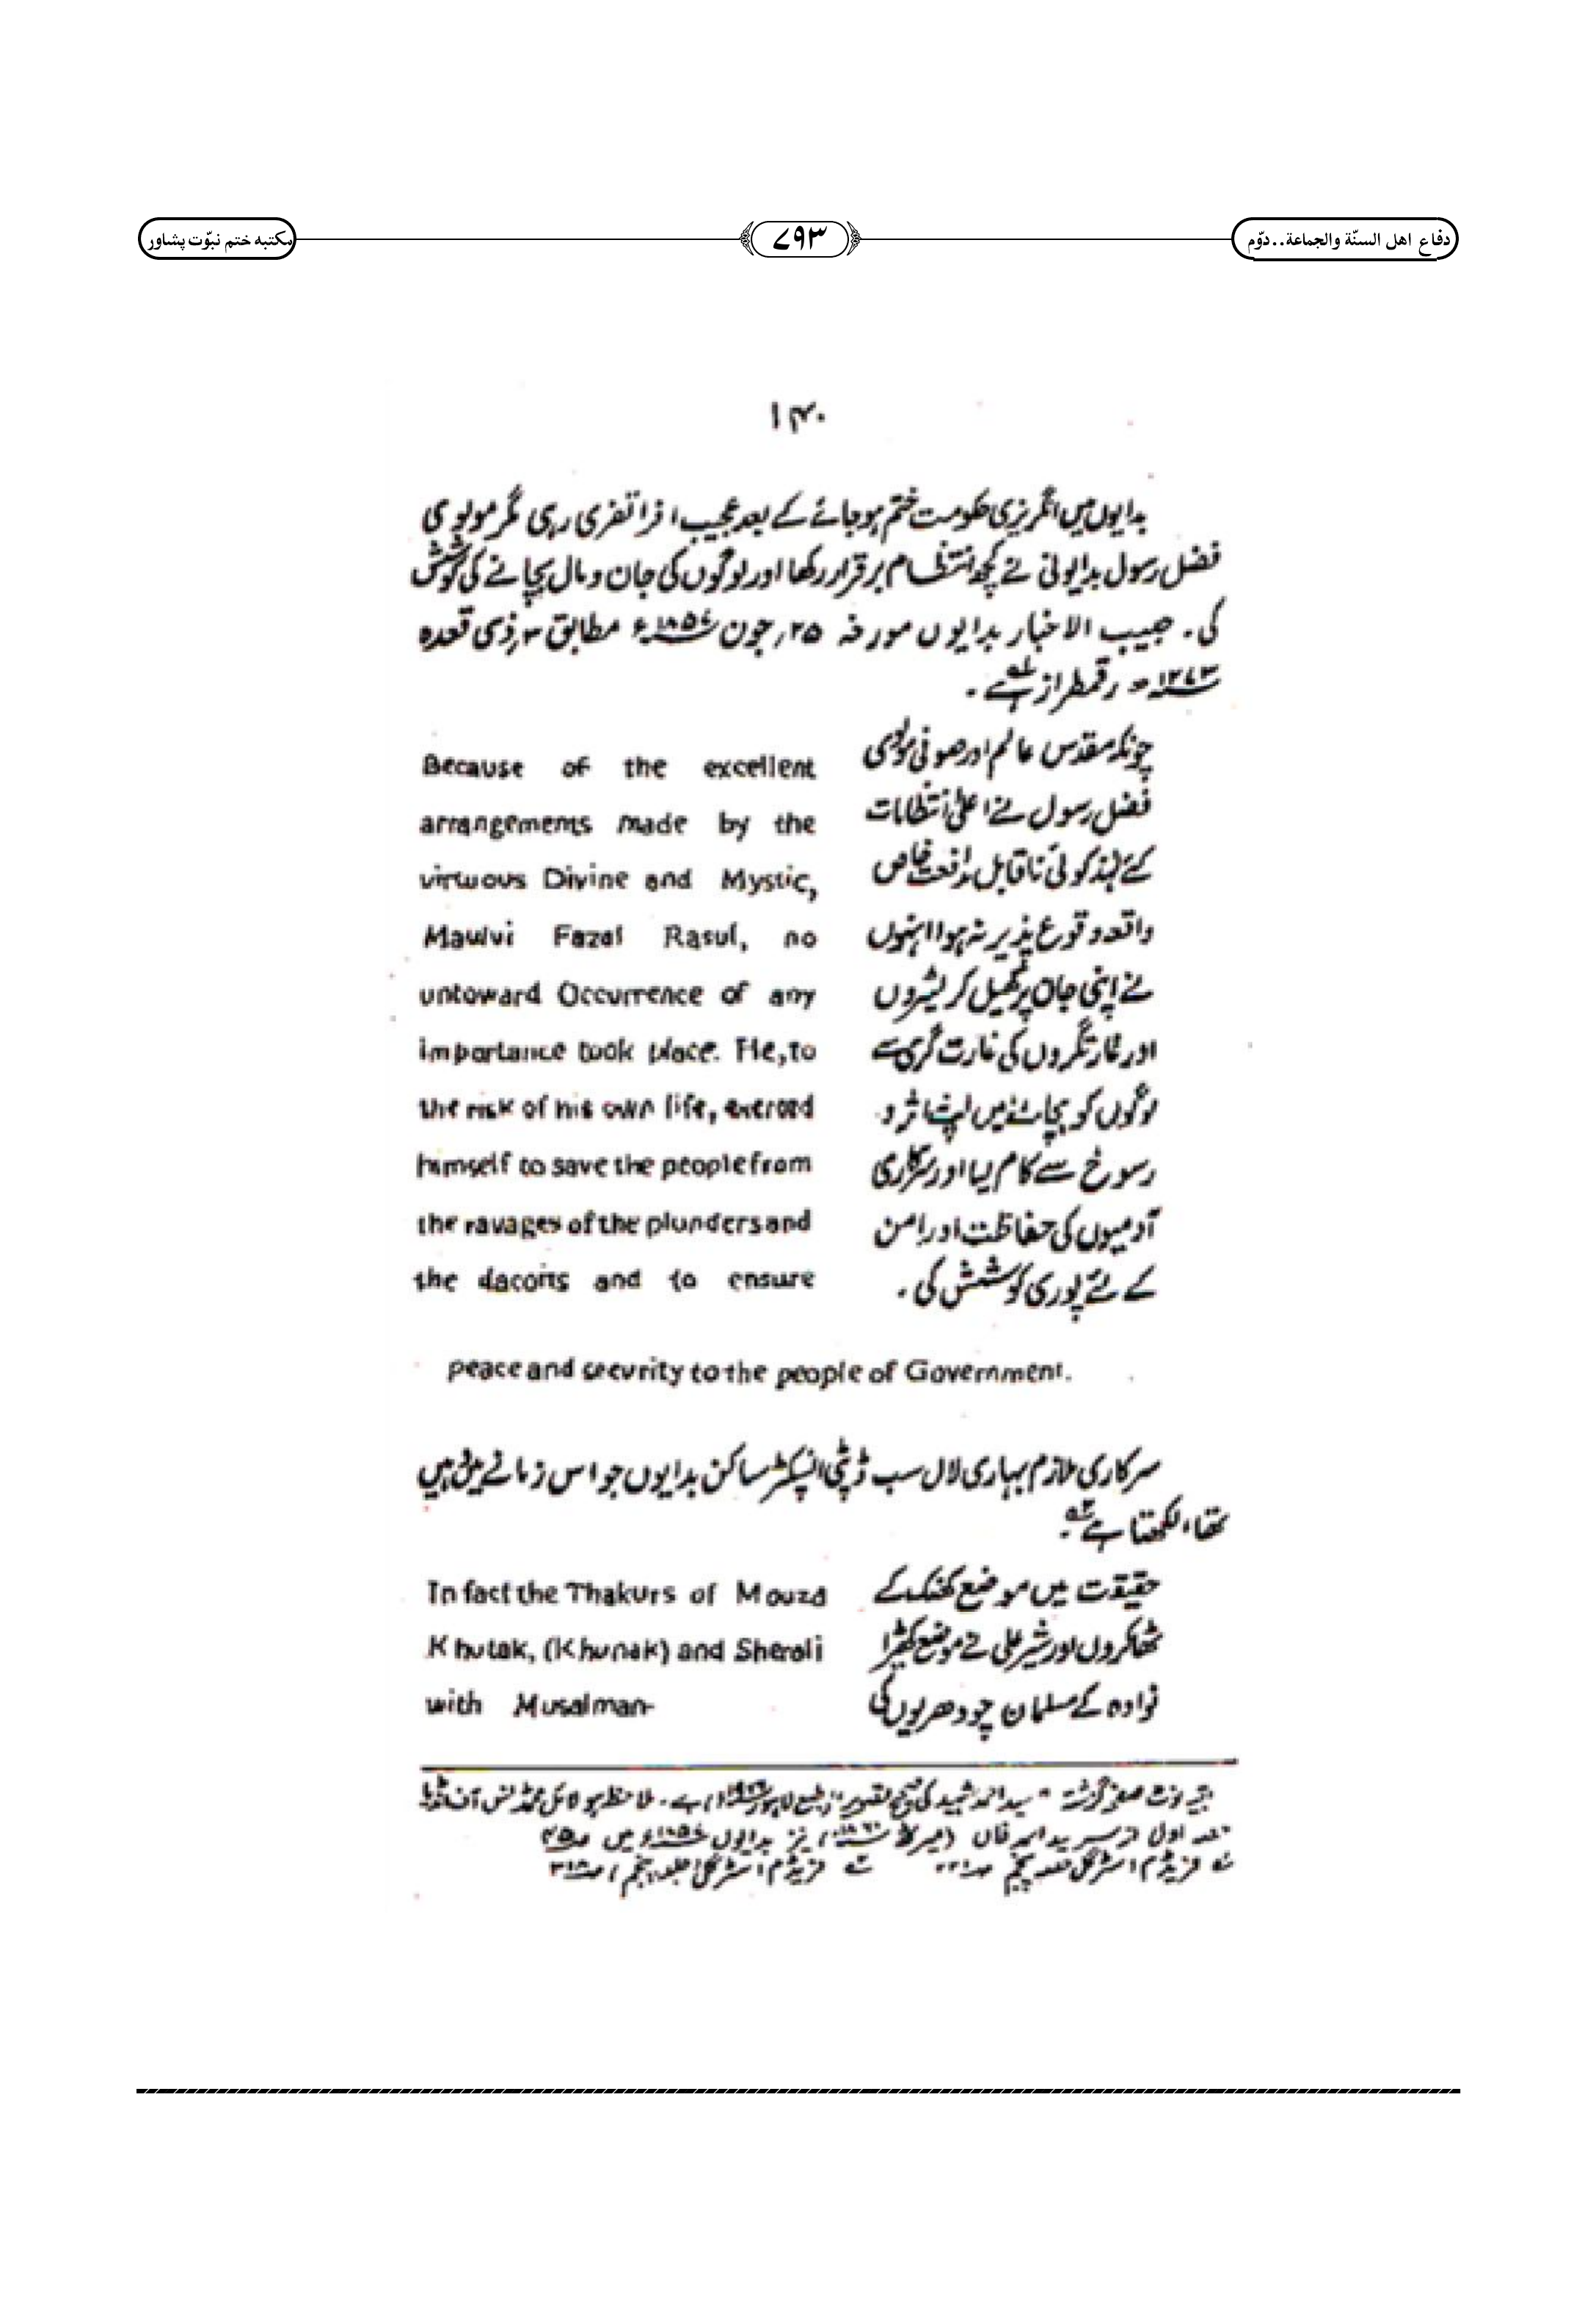 دفاع اهل السنّة والجماعة..دوّم
۷۹۳
مکتبه ختم نبوّت پشاور
۱۴۰
بدایوں میں انگریزی حکومت ختم ہو جانے کے بعد عجیب افراتفری رہی مگر مولوی
فضل رسول بدایونی نے کچھ انتظام برقرار رکھا اور لوگوں کی جان و مال بچانے کی کوشش
کی۔ حبیب الاخبار بدایوں مورخہ ۲۵؍جون ۱۸۵۷ء مطابق ۳؍ذی قعدہ
۱۲۷۳ھ رقمطراز ہے۔
چونکہ مقدس عالم اور صوفی مولوی
فضل رسول نے اعلیٰ انتظامات
کئے لہٰذ کوئی ناقابل مدافعت خاص
واقعہ وقوع پذیر نہ ہوا انہوں
نے اپنی جان پر کھیل کر لیٹروں
اور غارتگروں کی غارت گری سے
لوگوں کو بچانے میں اپنے اثر و
رسوخ سے کام لیا اور سرکاری
آدمیوں کی حفاظت اور امن
کے لئے پوری کوشش کی۔
Because of the excellent
arrangements made by the
virtuous Divine and Mystic,
Maulvi Fazal Rasul, no
untoward Occurrence of any
importance took place. He, to
the risk of his own life, exerced
himself to save the people from
the ravages of the plunders and
the dacoits and to ensure
peace and security to the people of Government.
سرکاری ملازم بہاری لال سب ڈپٹی انسپکٹر ساکن بدایوں جو اس زمانے میں وہیں
تھا، لکھتا ہے۔
حقیقت میں موضع کھنک کے
ٹھاکروں اور شیر علی نے موضع کھیڑا
نوادہ کے مسلمان چودھریوں کی
In fact the Thakurs of Mouza
Khutak, (Khunak) and Sherali
with Musalman-
بقیہ نوٹ صفحہ گزشتہ سید احمد شہید کی صحیح تصویر طبع لاہور ہے۔ ملاحظہ ہو لائل محمڈنس آف انڈیا
حصہ اول از سر سید احمد خاں (میرٹھ ۱۸۶۰ء) نیز بدایوں ۱۸۵۷ء میں
فریڈم اسٹرگل جلد پنجم فریڈم اسٹرگل (جلد پنجم)